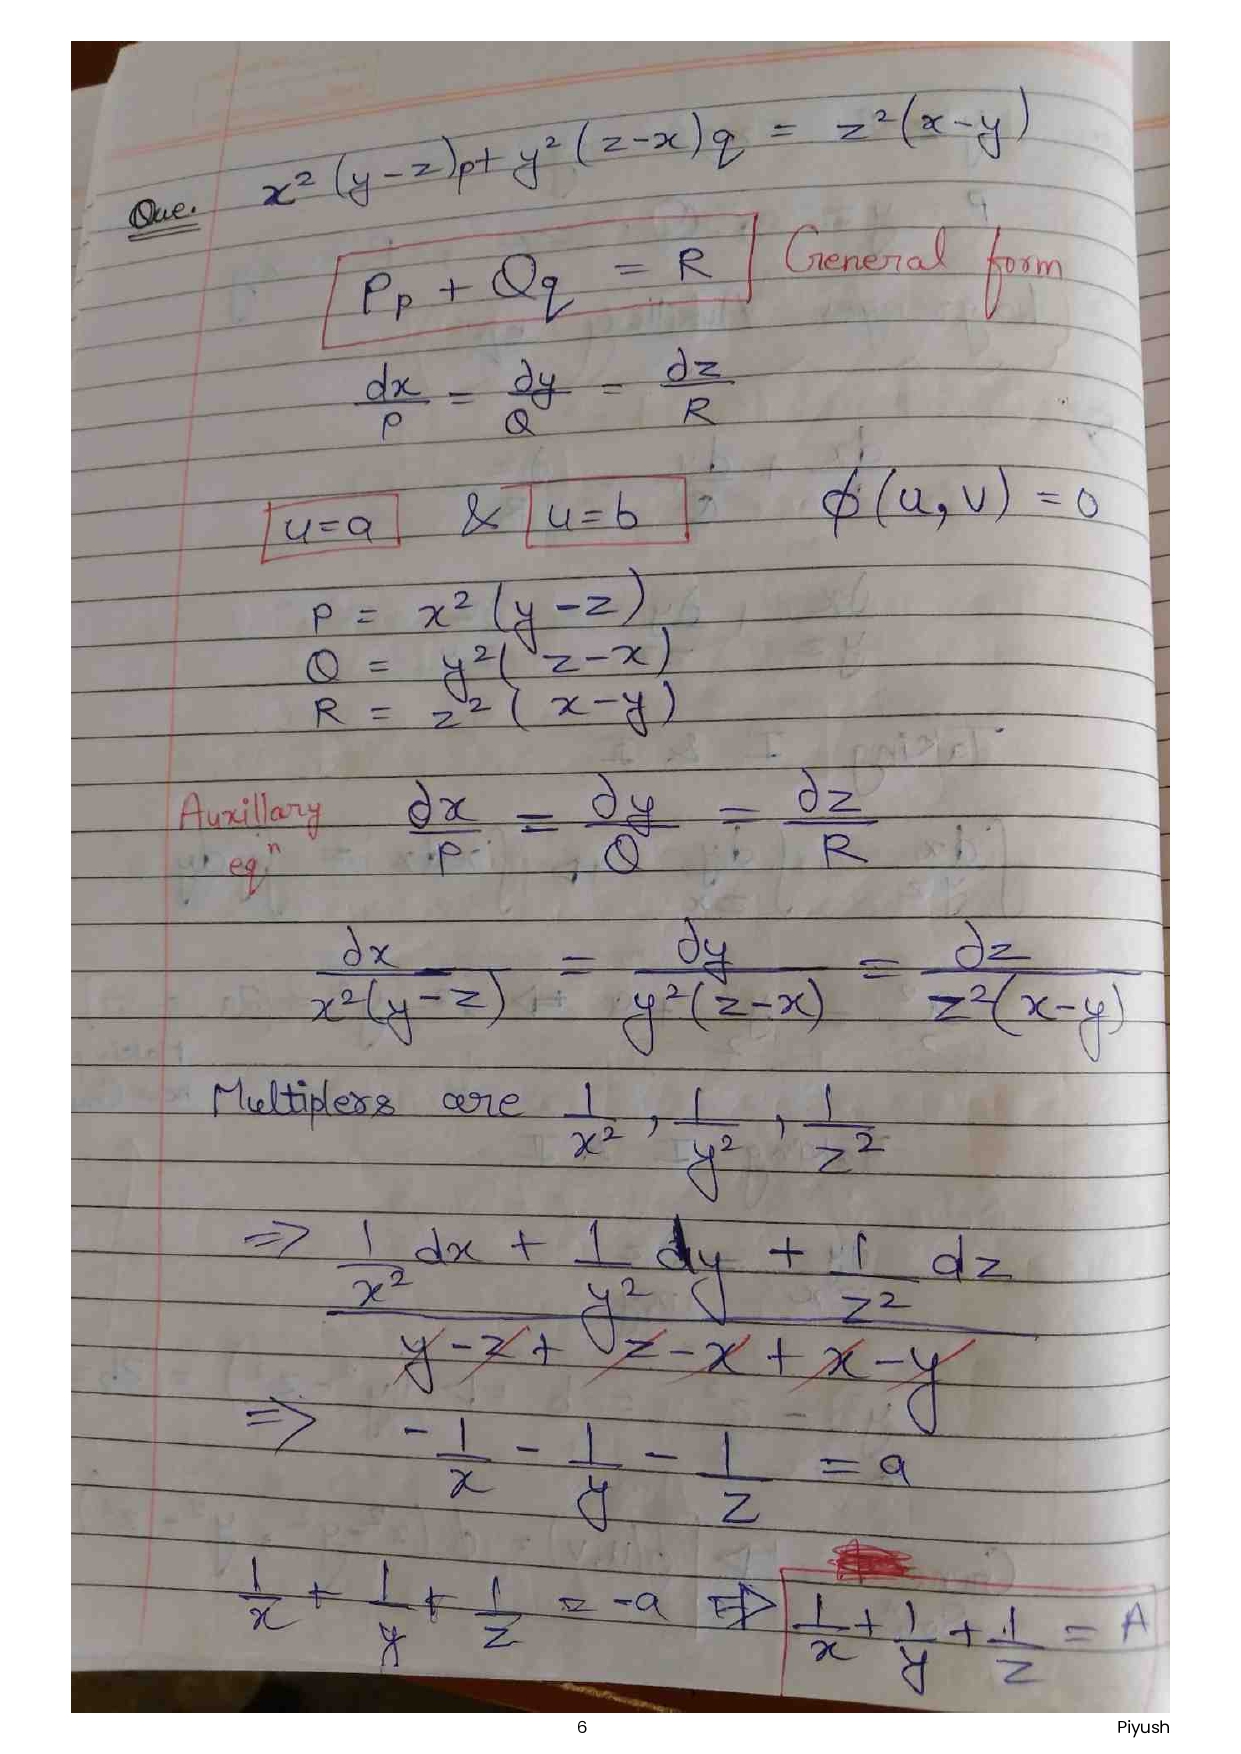 Que. x² (y-z)p + y² (z-x)q = z² (x-y)
Pp + Qq = R General form
dx/P = ∂y/Q = ∂z/R
u=a & u=b ϕ(u,v) = 0
P = x² (y-z)
Q = y² ( z-x)
R = z² ( x-y)
Auxillary eqⁿ ∂x/P = ∂y/Q = ∂z/R
∂x/x²(y-z) = ∂y/y²(z-x) = ∂z/z²(x-y)
Multiplers are 1/x² , 1/y² , 1/z²
⇒ 1/x² dx + 1/y² dy + 1/z² dz
y-z + z-x + x-y
⇒ -1/x - 1/y - 1/z = a
1/x + 1/y + 1/z = -a ⇒ 1/x + 1/y + 1/z = A
6
Piyush